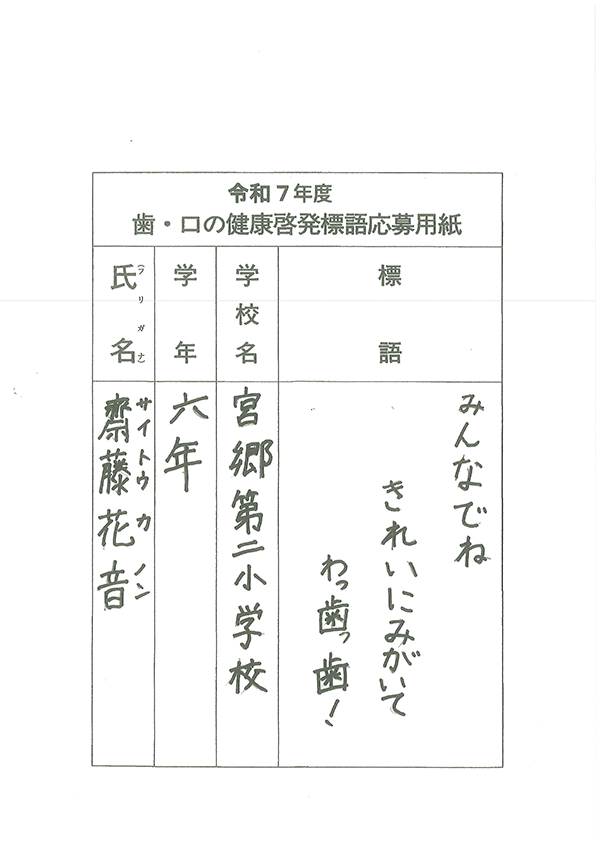 令和7年度
歯・口の健康啓発標語応募用紙
標語
みんなでね
きれいにみがいて
わっ歯っ歯!
学校名
宮郷第二小学校
学年
六年
(フリガナ)
氏名
サイトウ カノン
齋藤花音